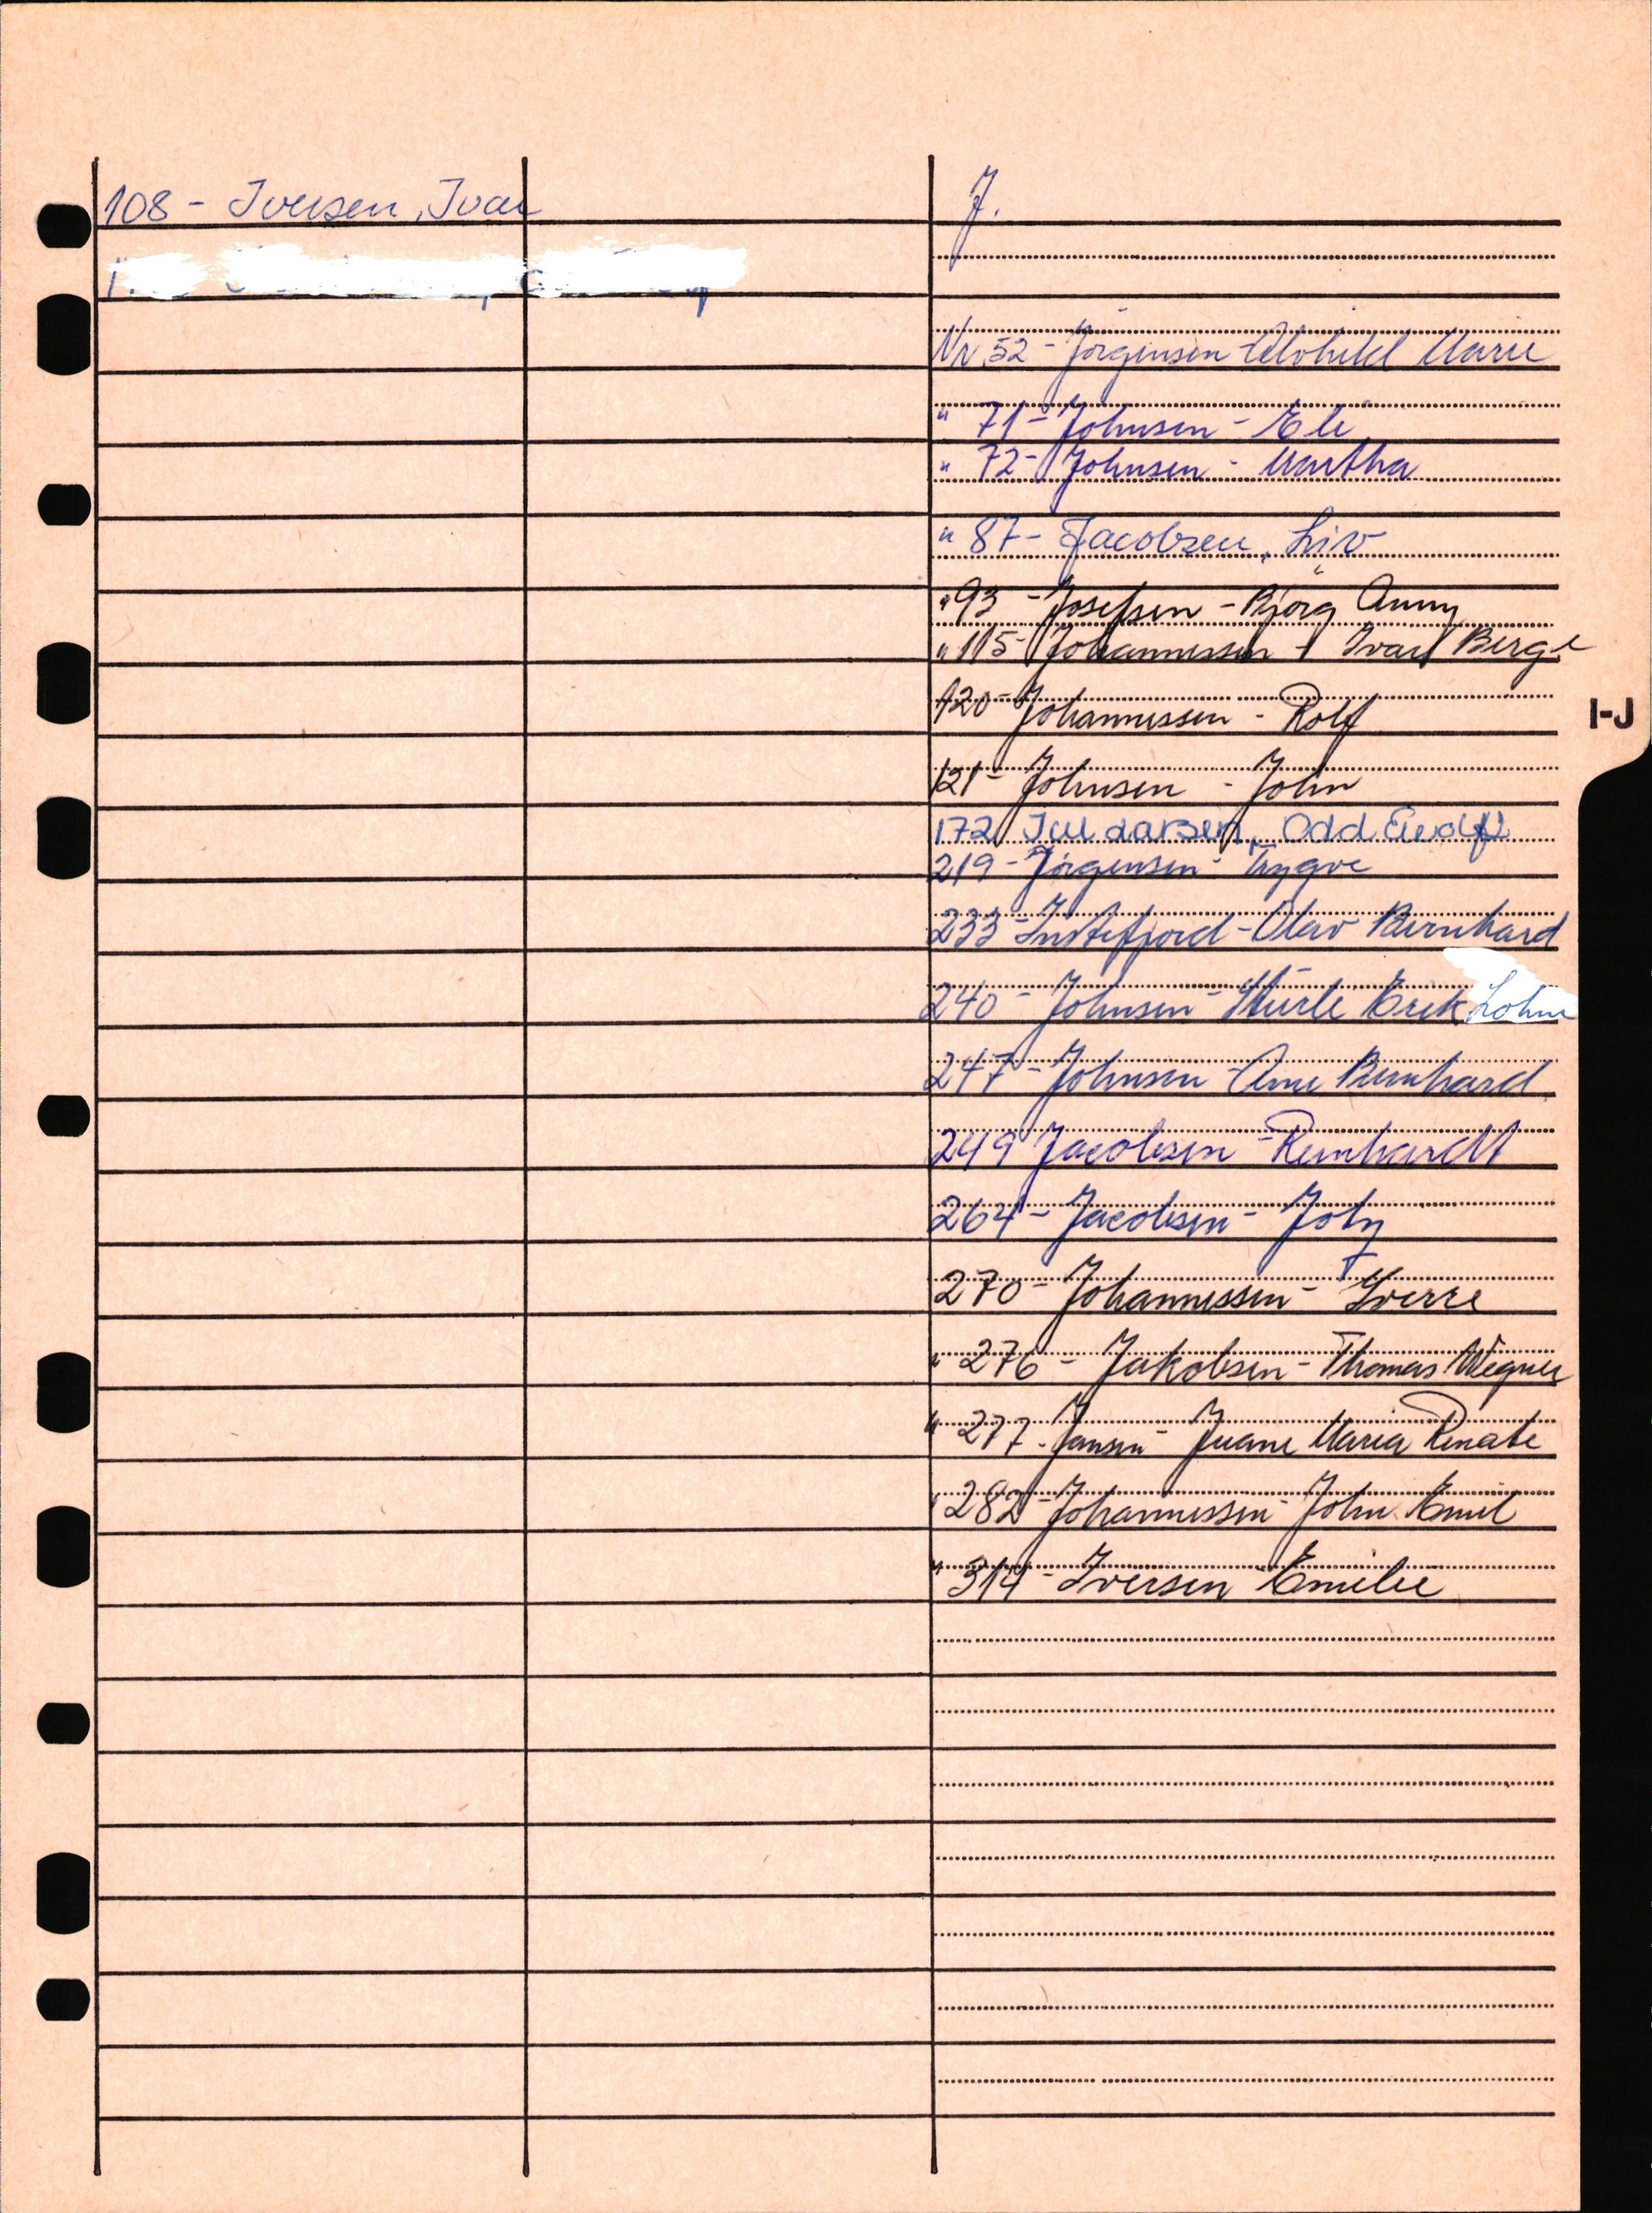 108 - Iversen, Ivar
J.
Nr. 52 - Jørgensen - Alvhild Marie
" 71 - Johnsen - Eli
" 72 - Johnsen - Martha
" 87 - Jacobsen, Liv
" 93 - Josefsen - Bjørg Anny
" 115 - Johannessen - Ivar Berge
120 - Johannessen - Rolf
I-J
121 - Johnsen - John
172 Juul Larsen, Odd
219 - Jørgensen - Trygve
233 - Instefjord - Olav Bernhard
240 - Johnsen - Sturle Erik Lohne
247 - Johnsen - Arne Bernhard
249 Jacobsen - Reinhardt
264 - Jacobsen -
270 - Johannessen - Sverre
" 276 - Jakobsen - Thomas Wegner
" 277 - Jansen - Maria Renate
" 282 - Johannessen - John Emil
" 314 - Iversen Emilie